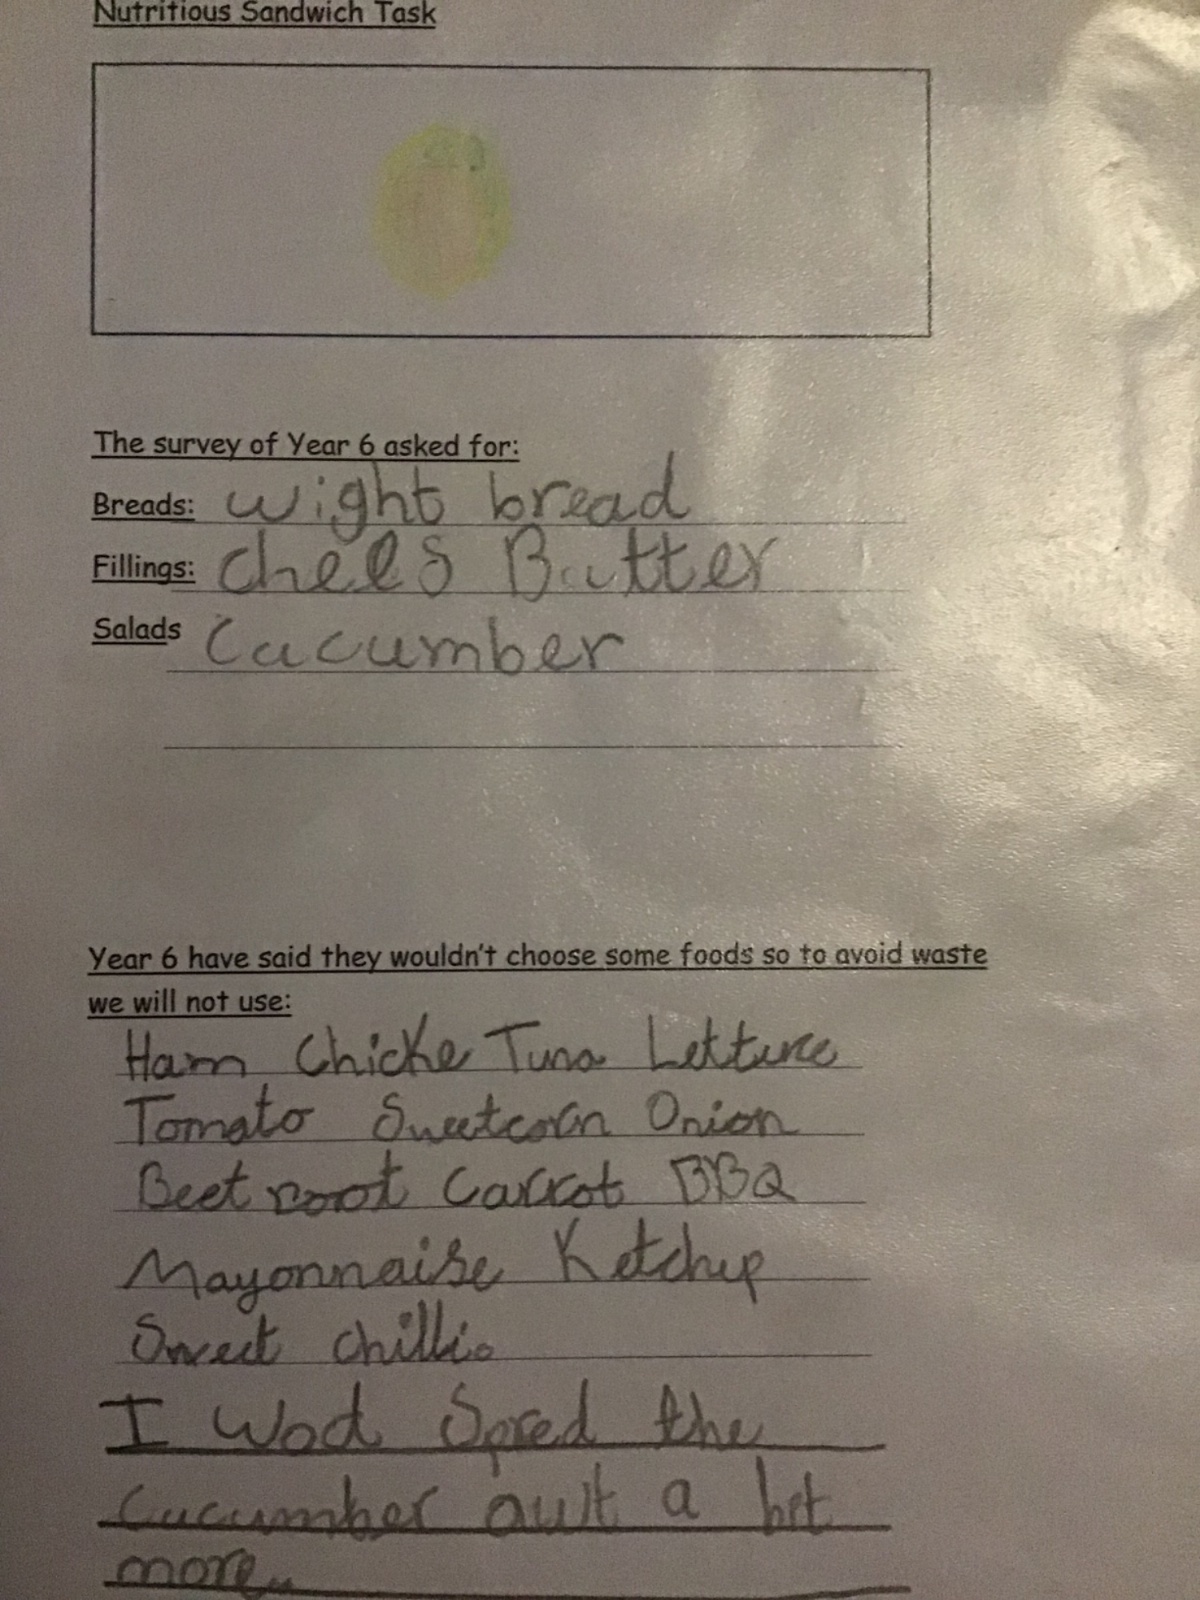 Nutritious Sandwich Task
The survey of Year 6 asked for:
Breads: wight bread
Fillings: chees Butter
Salads Cucumber
Year 6 have said they wouldn't choose some foods so to avoid waste
we will not use:
Ham Chicke Tuna Letture
Tomato Sweetcorn Onion
Beet root Carrot BBQ
Mayonnaise Ketchup
Sweet chilli.
I Wod Spred the
Cucumber awt a bit
more..